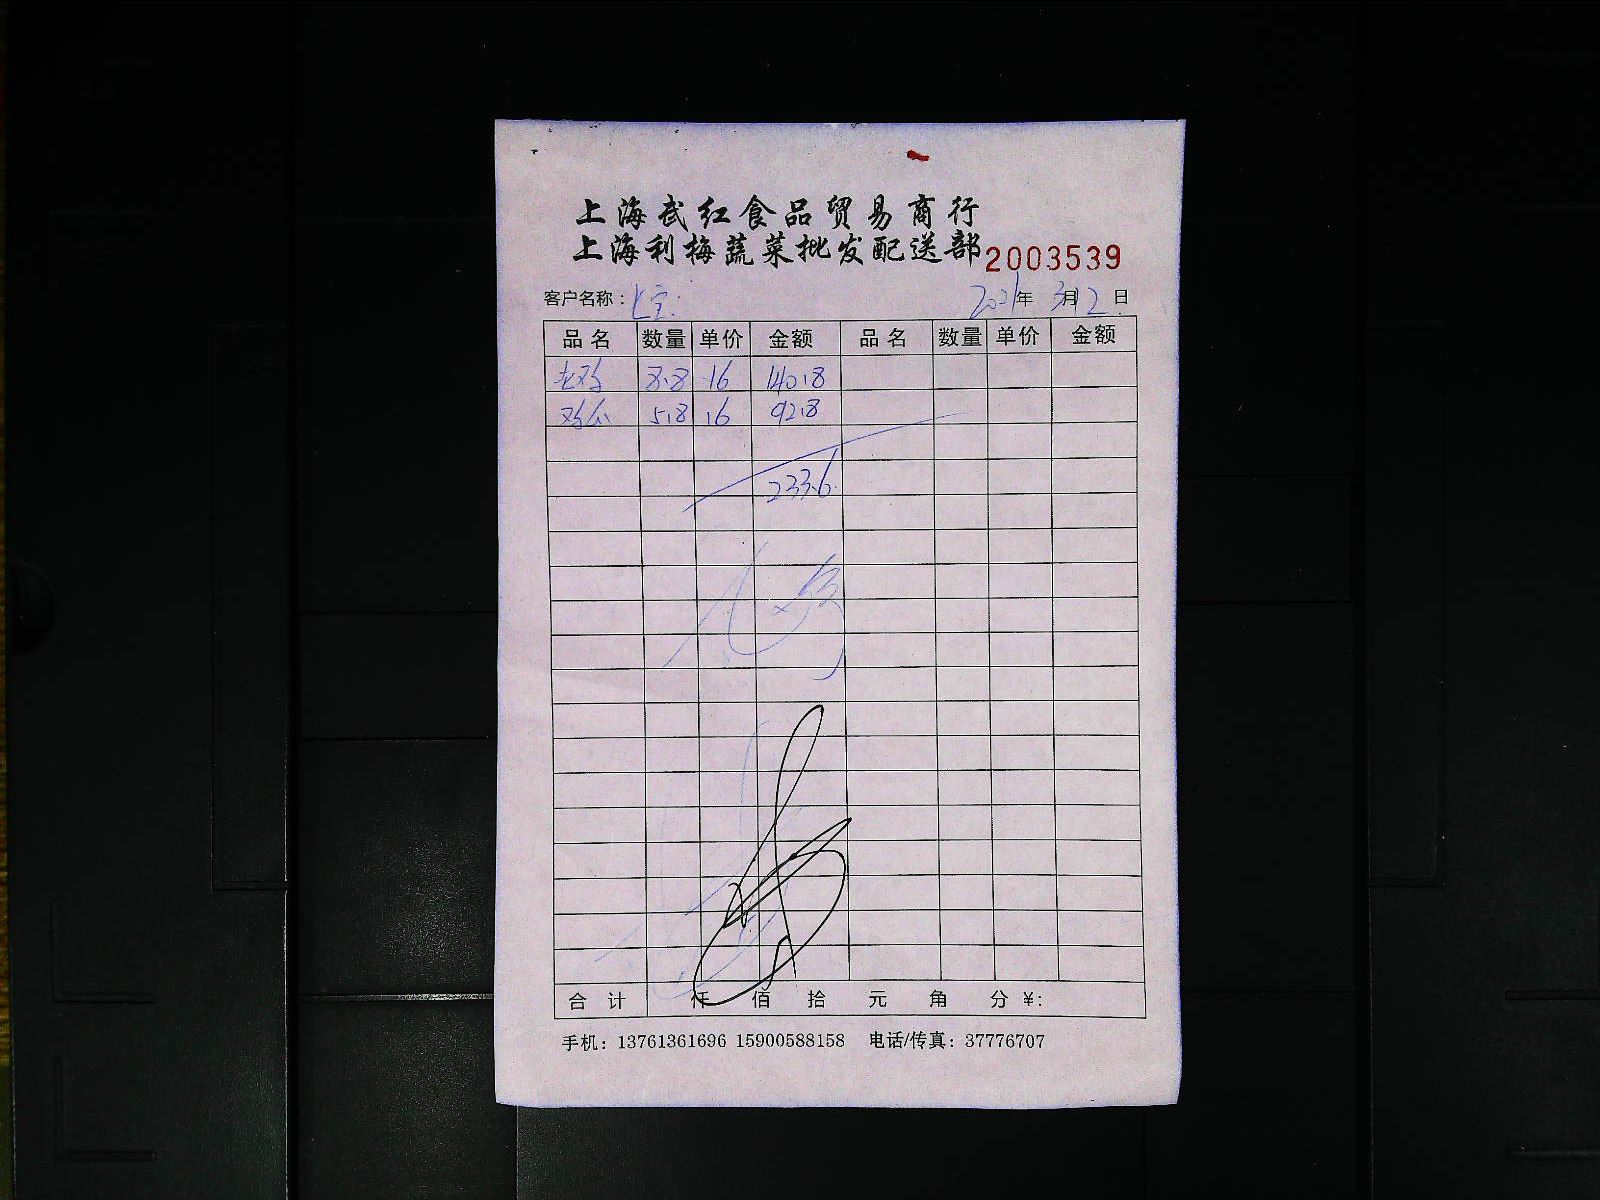 上海武红食品贸易商行
上海利梅蔬菜批发配送部 2003539
客户名称: 2021年 3月 2日
品名 数量 单价 金额 品名 数量 单价 金额
老鸡 8.8 16 140.8
鸡 5.8 16 92.8
233.6
合计 仟 佰 拾 元 角 分 ¥:
手机: 13761361696 15900588158 电话/传真: 37776707